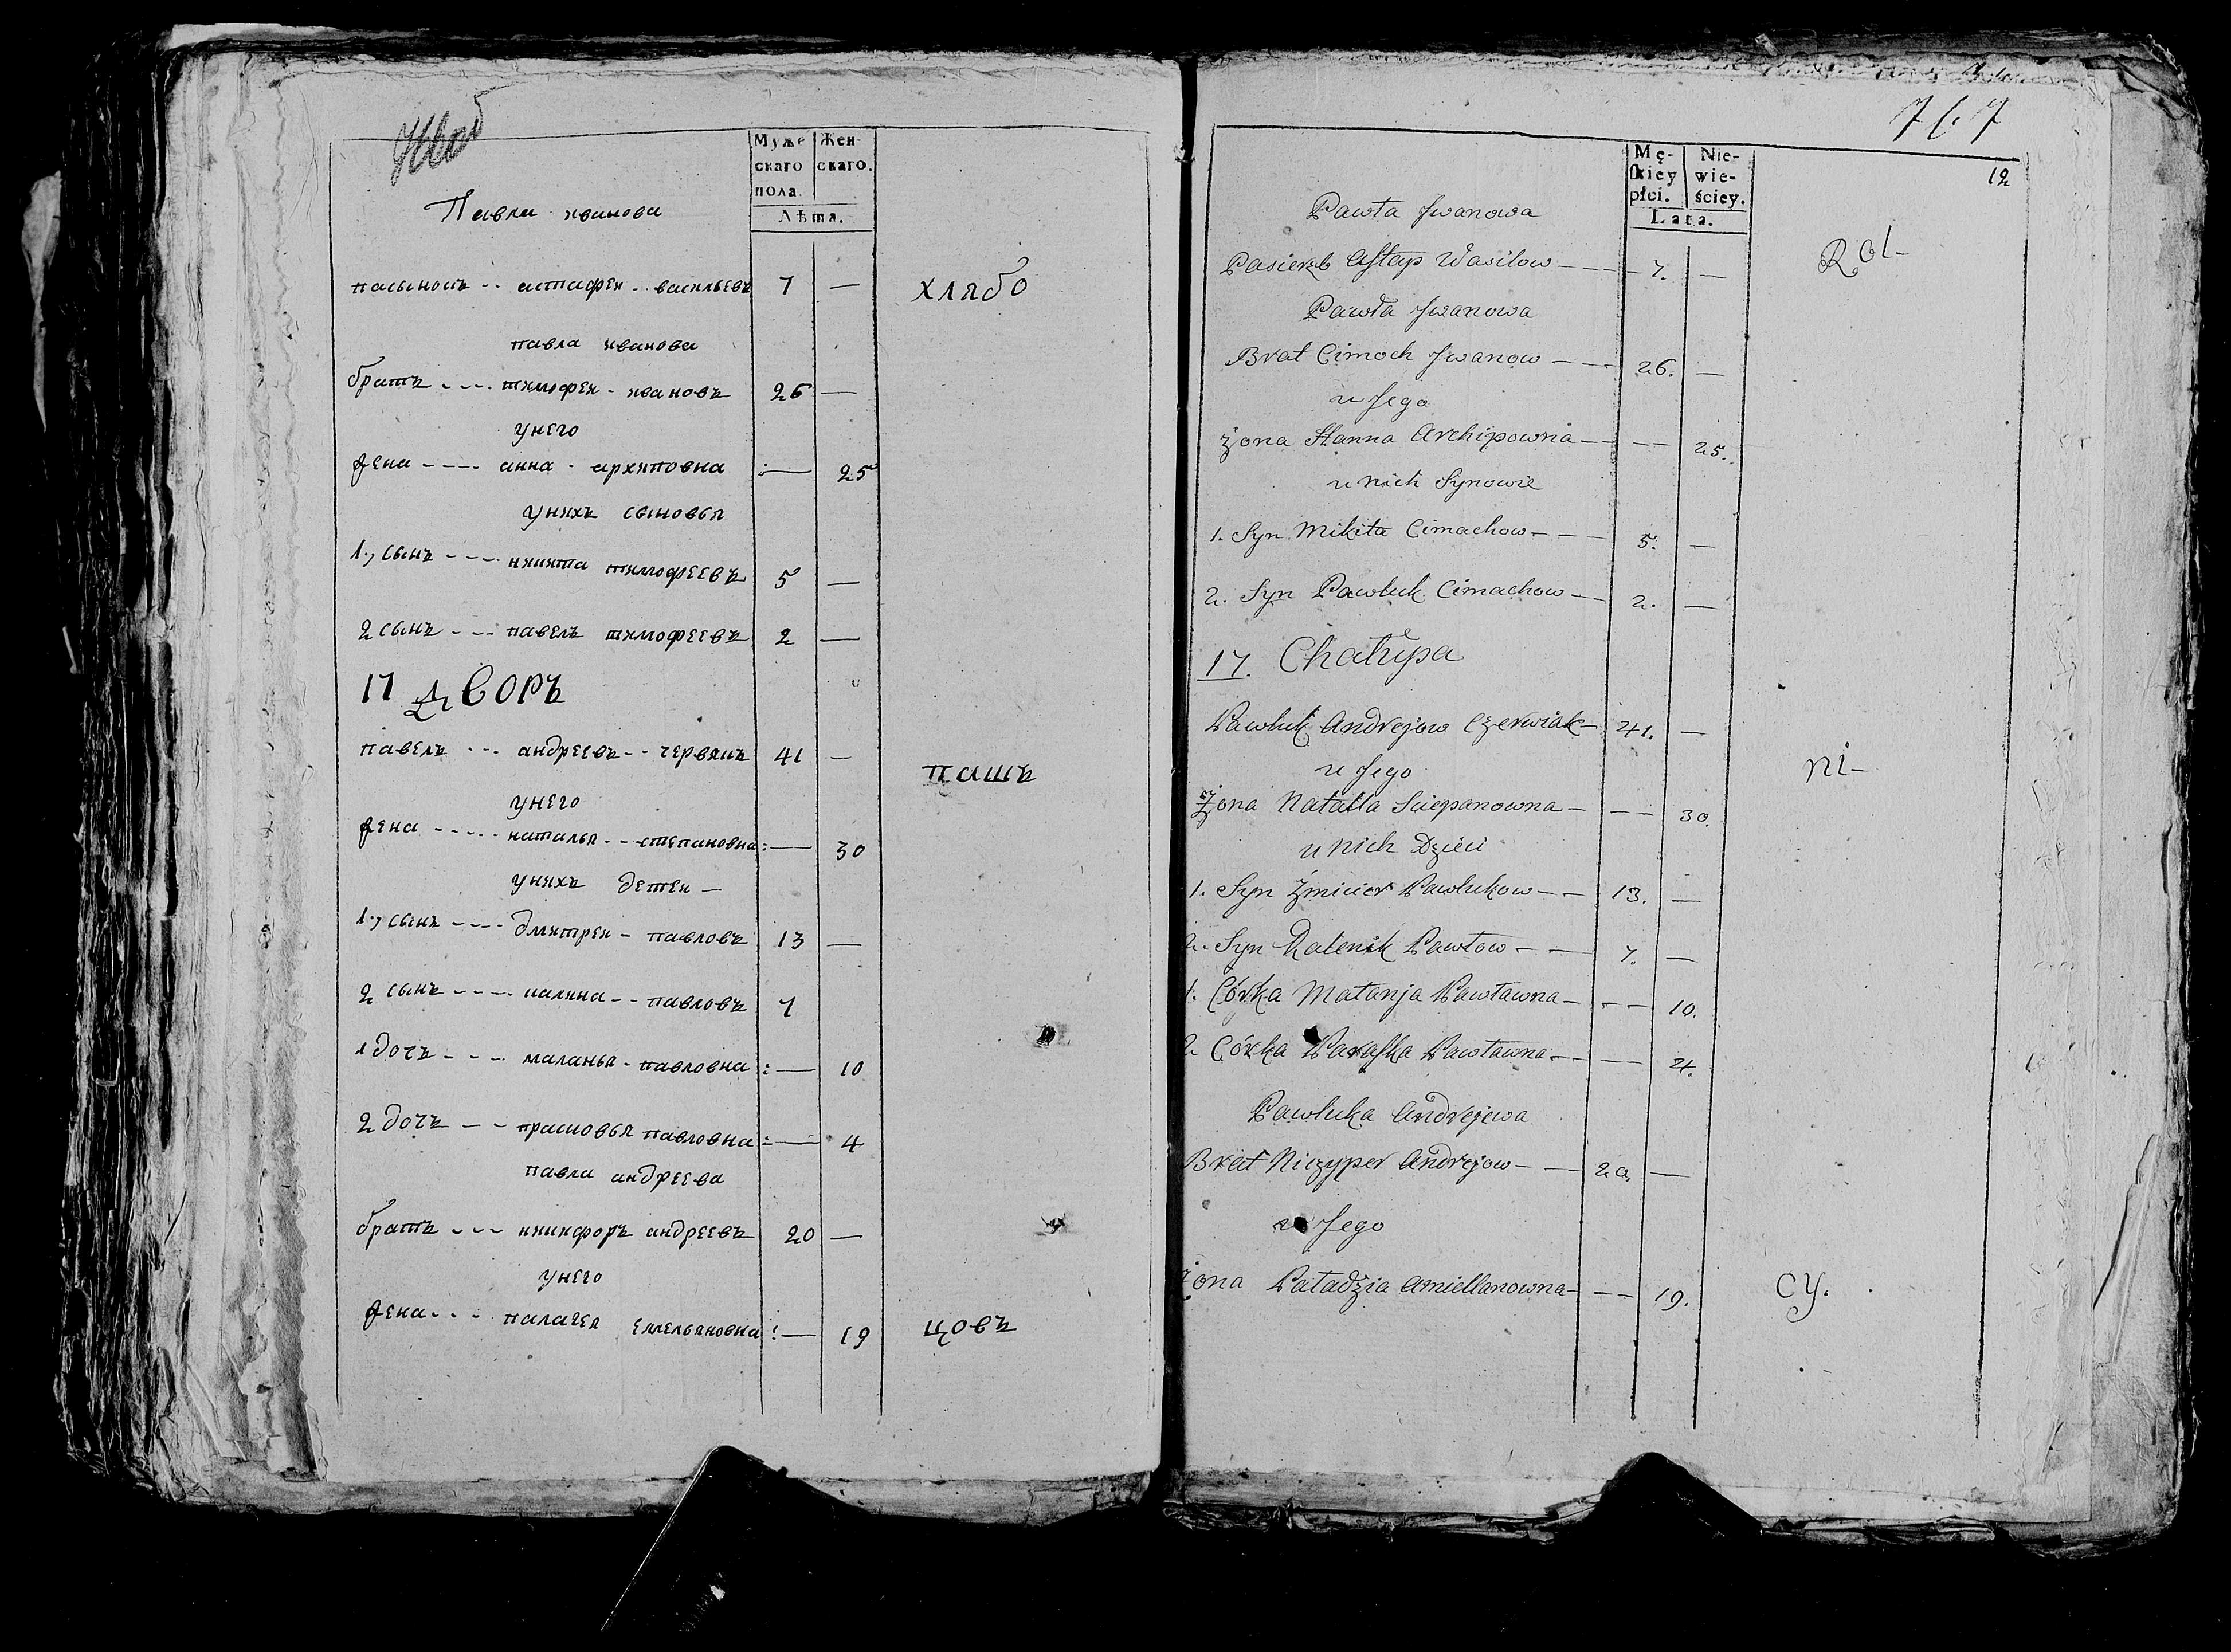 Муже
скаго
пола.
Жен-
скаго.
Лѣта.
Павла иванова
пасынокъ -- астафеи -- васильевъ 7 —
хлябо
павла иванова
братъ ---- тимофеи - ивановъ 26 —
унего
жена ---- анна - архиповна :— 25
унихъ сыновья
1., сынъ ---- никита тимофеевъ 5 —
2 сынъ --- павелъ тимофеевъ 2 —
17 дворъ
павелъ --- андреевъ -- червякъ 41 —
пашъ
унего
жена ----- наталья -- степановна :— 30
унихъ детеи —
1., сынъ ---- дмитреи - павловъ 13 —
2 сынъ ---- калина -- павловъ 7
1 дочъ --- маланья - павловна :— 10
2 дочъ -- прасковья павловна :— 4
павла андреева
братъ --- никифоръ андреевъ 20 —
унего
жена --- палагея емельяновна :— 19
цовъ
767
12
Mę-
ſkiey
płci.
Nie-
wie-
ściey.
Lata.
Pawła Jwanowa
Rol-
Pasierzb Aſtap Wasilow — 7. —
Pawła Jwanowa
Brat Cimoch Jwanow — 26. —
u Jego
żona Hanna Archipowna — — 25.
u nich Synowie
1. Syn Mikita Cimachow — 5. —
2. Syn Pawluk Cimachow — 2. —
17. Chałupa
Pawluk Andrejow Czerwiak — 41. —
ni-
u Jego
Żona Natalla Sciepanowna — — 30.
u nich Dzieci
1. Syn Źmicier Pawlukow — 13. —
2. Syn Kalenik Pawłow — 7. —
1. Córka Matanja Pawławna — — 10.
2. Córka Paraſka Pawławna — — 4.
Pawluka Andrejewa
Brat Niczyper Andrejow — 20. —
u Jego
żona Paładzia Amiellanowna — — 19.
cy.